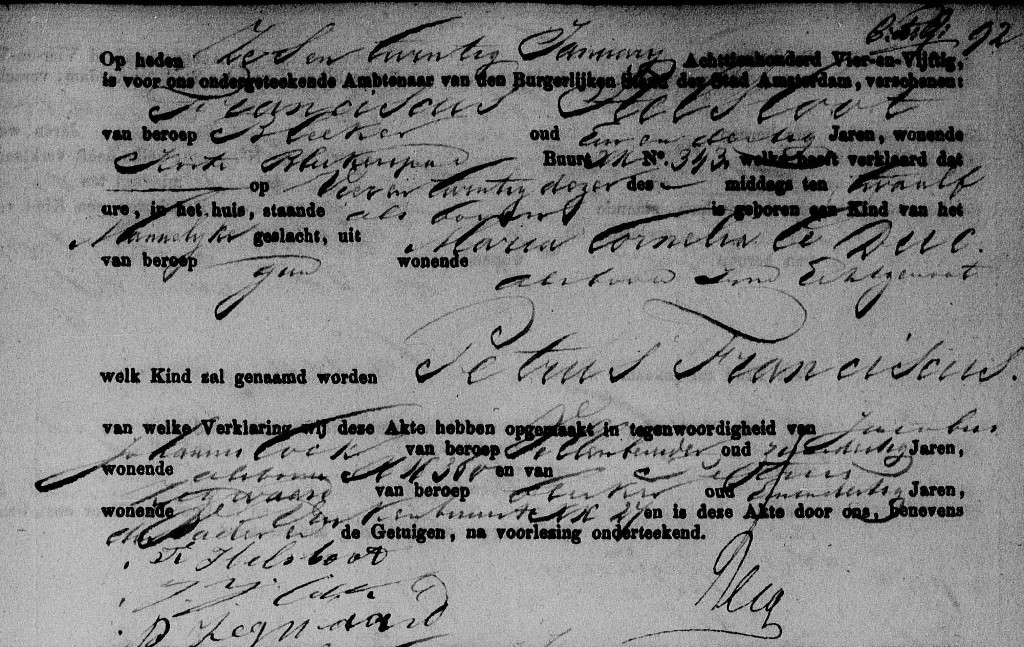 92
Op heden Zes en twintig January Achttienhonderd Vier-en-Vijftig,
is voor ons ondergeteekende Ambtenaar van den Burgerlijken der Stad Amsterdam, verschenen:
Franciscus Helsloot
van beroep Bleeker oud Een en dertig Jaren, wonende
Korte Blekerspad Buurt XX No. 343 welke heeft verklaard dat
op Vier en twintig dezer des middags ten twaalf
ure, in het huis, staande als boven is geboren een Kind van het
Mannelijke geslacht, uit Maria Cornelia le Duc.
van beroep geen wonende
als boven zijne Echtgenoot
welk Kind zal genaamd worden Petrus Franciscus.
van welke Verklaring wij deze Akte hebben opgemaakt in tegenwoordigheid van Jacobus
Johannes Cock van beroep oud dertig Jaren,
wonende alsboven XX 360 en van
Zegwaard van beroep oud Jaren,
wonende XX 27 en is deze Akte door ons, benevens
de Vader en de Getuigen, na voorlezing onderteekend.
Fr Helsloot
P Zegwaard